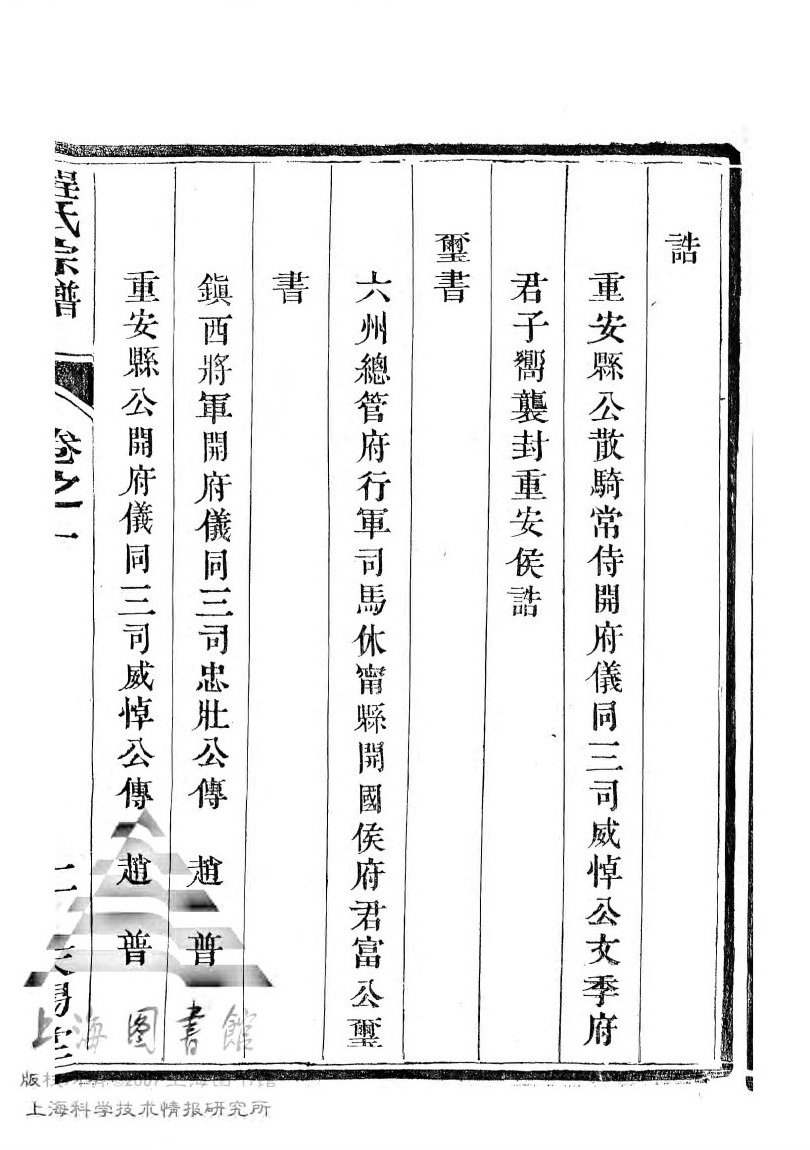 誥
重安縣公散騎常侍開府儀同三司威悼公文季府
君子嚮襲封重安侯誥
璽書
六州總管府行軍司馬休甯縣開國侯府君富公璽
書
鎭西將軍開府儀同三司忠壯公傳 趙普
重安縣公開府儀同三司威悼公傳 趙普
程氏宗譜 卷之一 二
上海圖書館
上海科学技术情报研究所